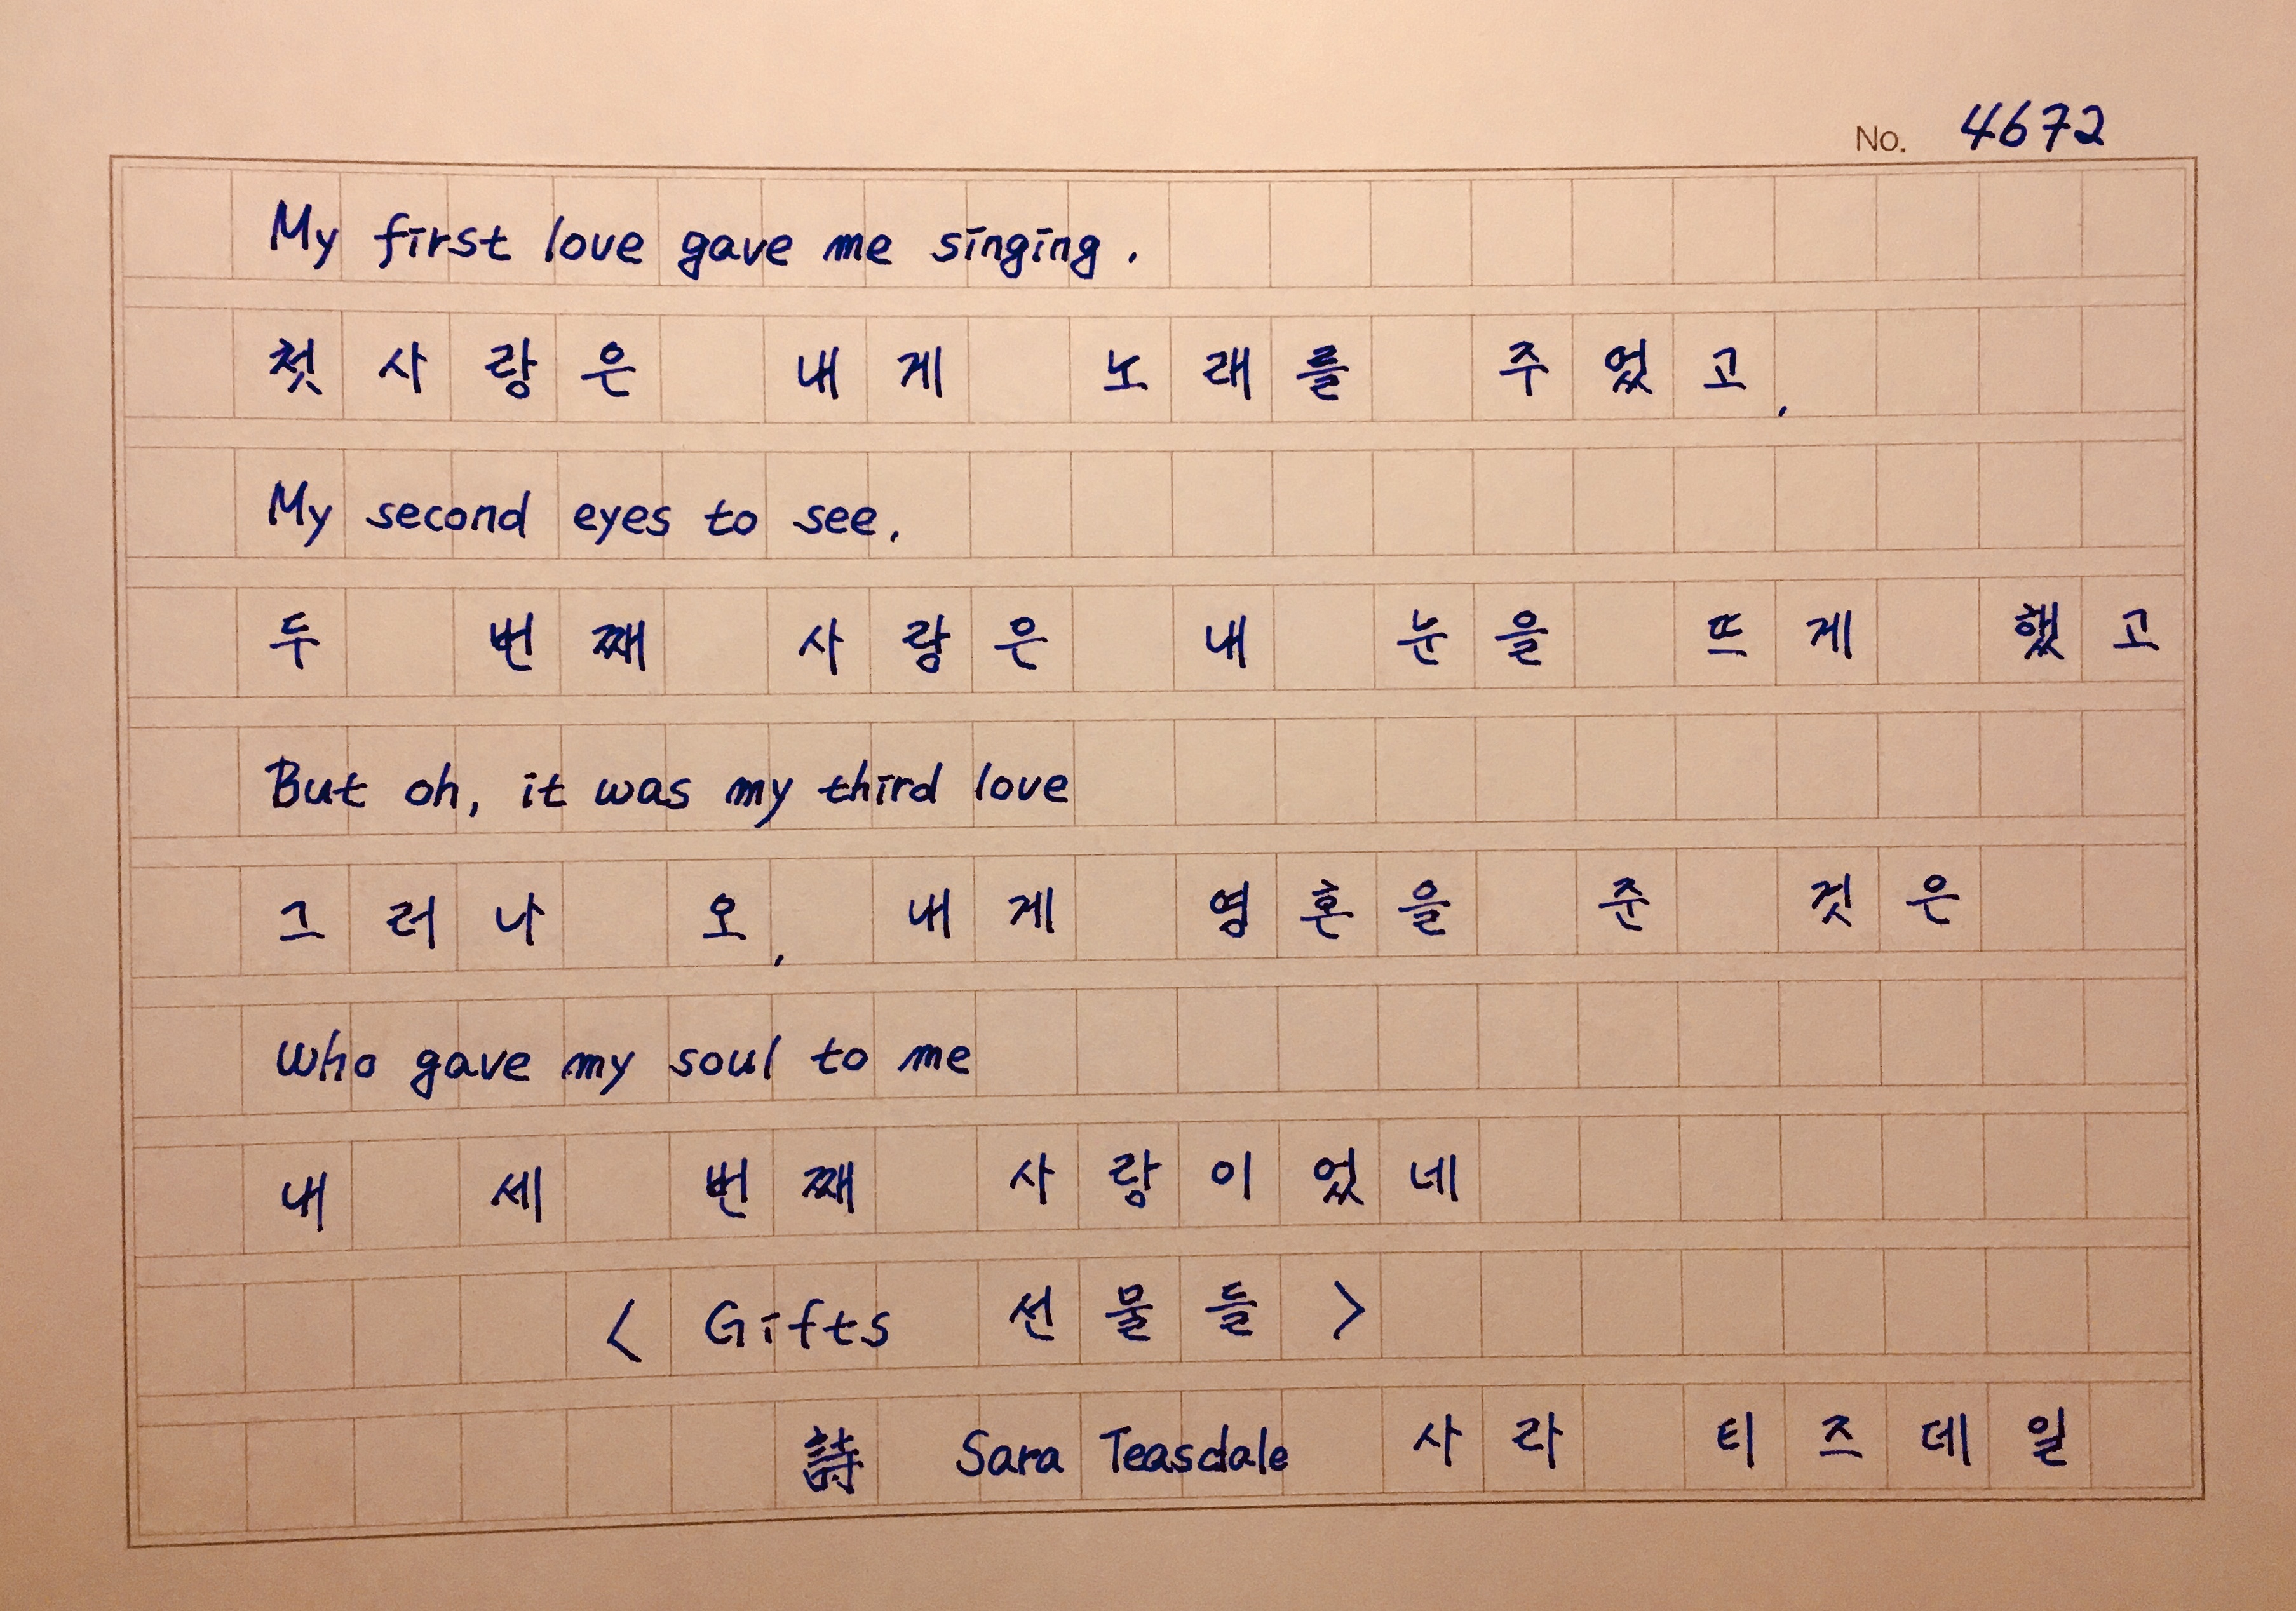 No. 4672
My first love gave me singing.
첫사랑은 내게 노래를 주었고,
My second eyes to see,
두 번째 사랑은 내 눈을 뜨게 했고
But oh, it was my third love
그러나 오, 내게 영혼을 준 것은
Who gave my soul to me
내 세 번째 사랑이었네
< Gifts 선물들 >
詩 Sara Teasdale 사라 티즈데일